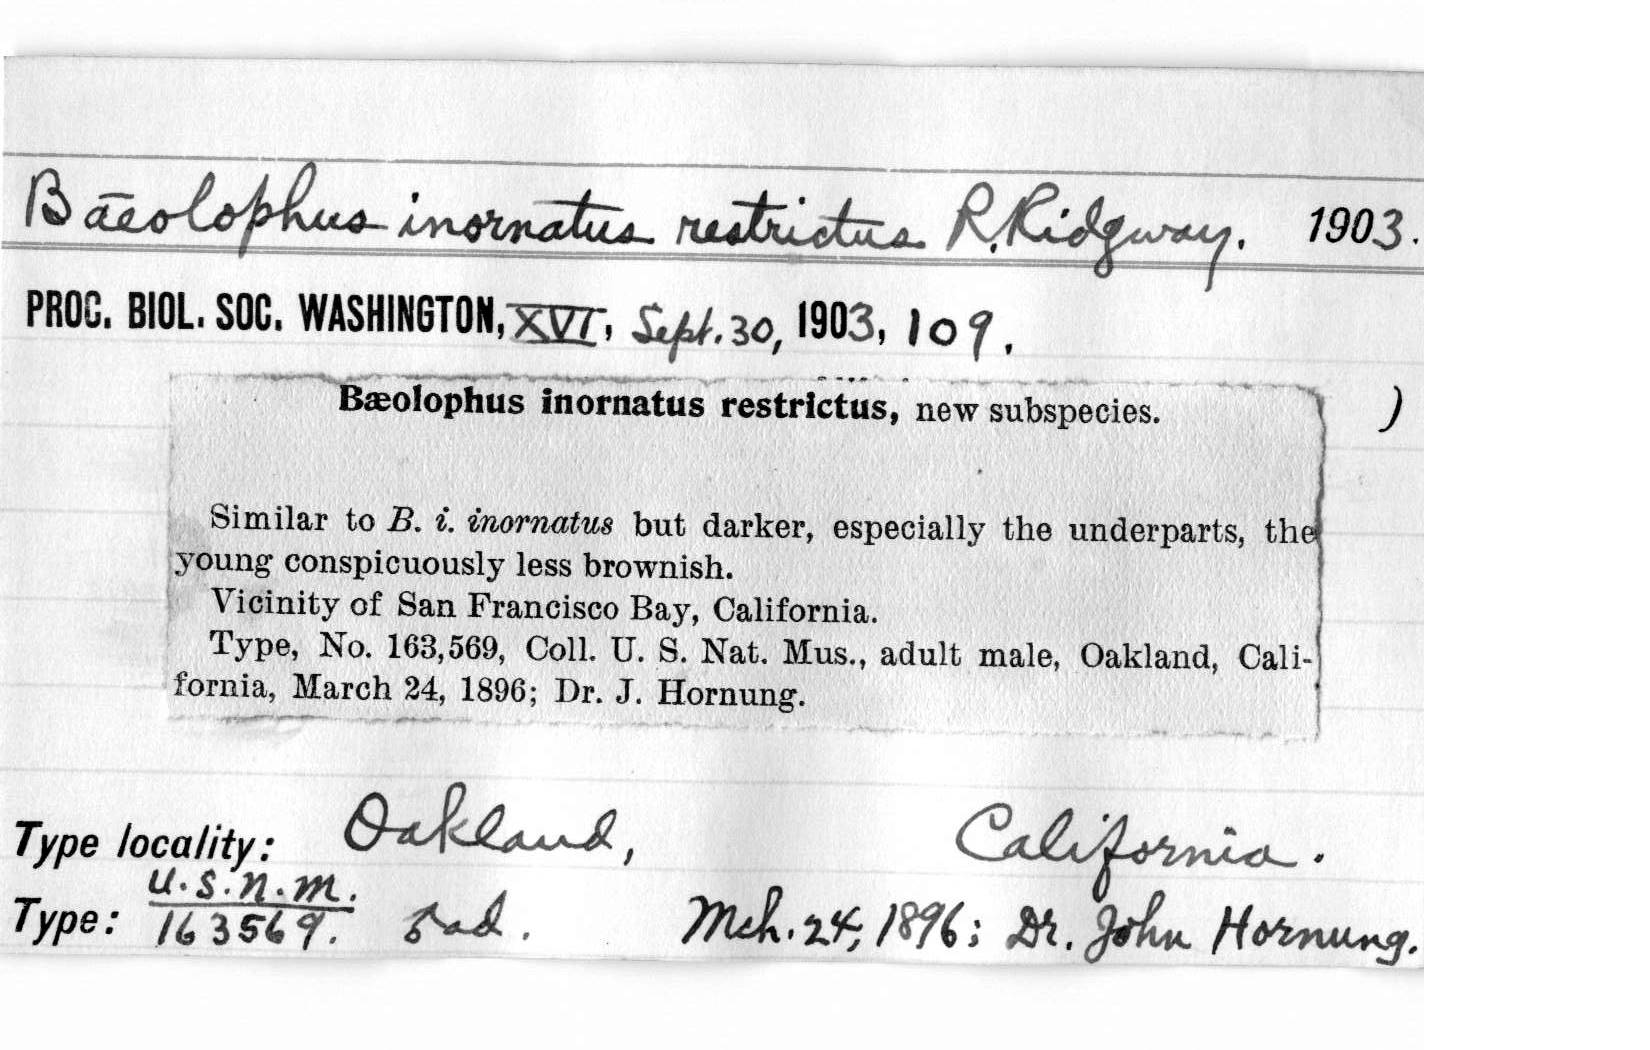 Baeolophus inornatus restrictus R. Ridgway. 1903.
PROC. BIOL. SOC. WASHINGTON, XVI, Sept. 30, 1903, 109.
Bæolophus inornatus restrictus, new subspecies.
)
Similar to B. i. inornatus but darker, especially the underparts, the
young conspicuously less brownish.
Vicinity of San Francisco Bay, California.
Type, No. 163,569, Coll. U. S. Nat. Mus., adult male, Oakland, Cali-
fornia, March 24, 1896; Dr. J. Hornung.
Type locality: Oakland, California.
U.S.N.M.
Type: 163569. ad. Mch. 24, 1896; Dr. John Hornung.